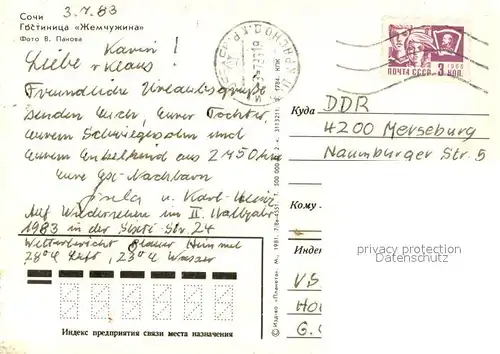 Сочи
Гостиница «Жемчужина»
Фото В. Панова
3.7.83
Liebe Karin !
u Klaus
Freundliche Urlaubsgrüße
senden Euch, Eurer Tochter
Eurem Schwiegersohn und
Eurem Enkelkind aus 2450 km
Eure Ex-Nachbarn
Gisela u. Karl-Heinz
Auf Wiedersehen im II. Halbjahr
1983 in der Str. 24
Wetterbericht Blauer Himmel
28°C Luft, 23°C Wasser
Индекс предприятия связи места назначения
© Издво «Планета», М., 1981.
ПОЧТА СССР 3 КОП.
1966
Куда DDR
4200 Merseburg
Naumburger Str. 5
Кому
privacy protection
Datenschutz
Инде
VS
Ho
G.